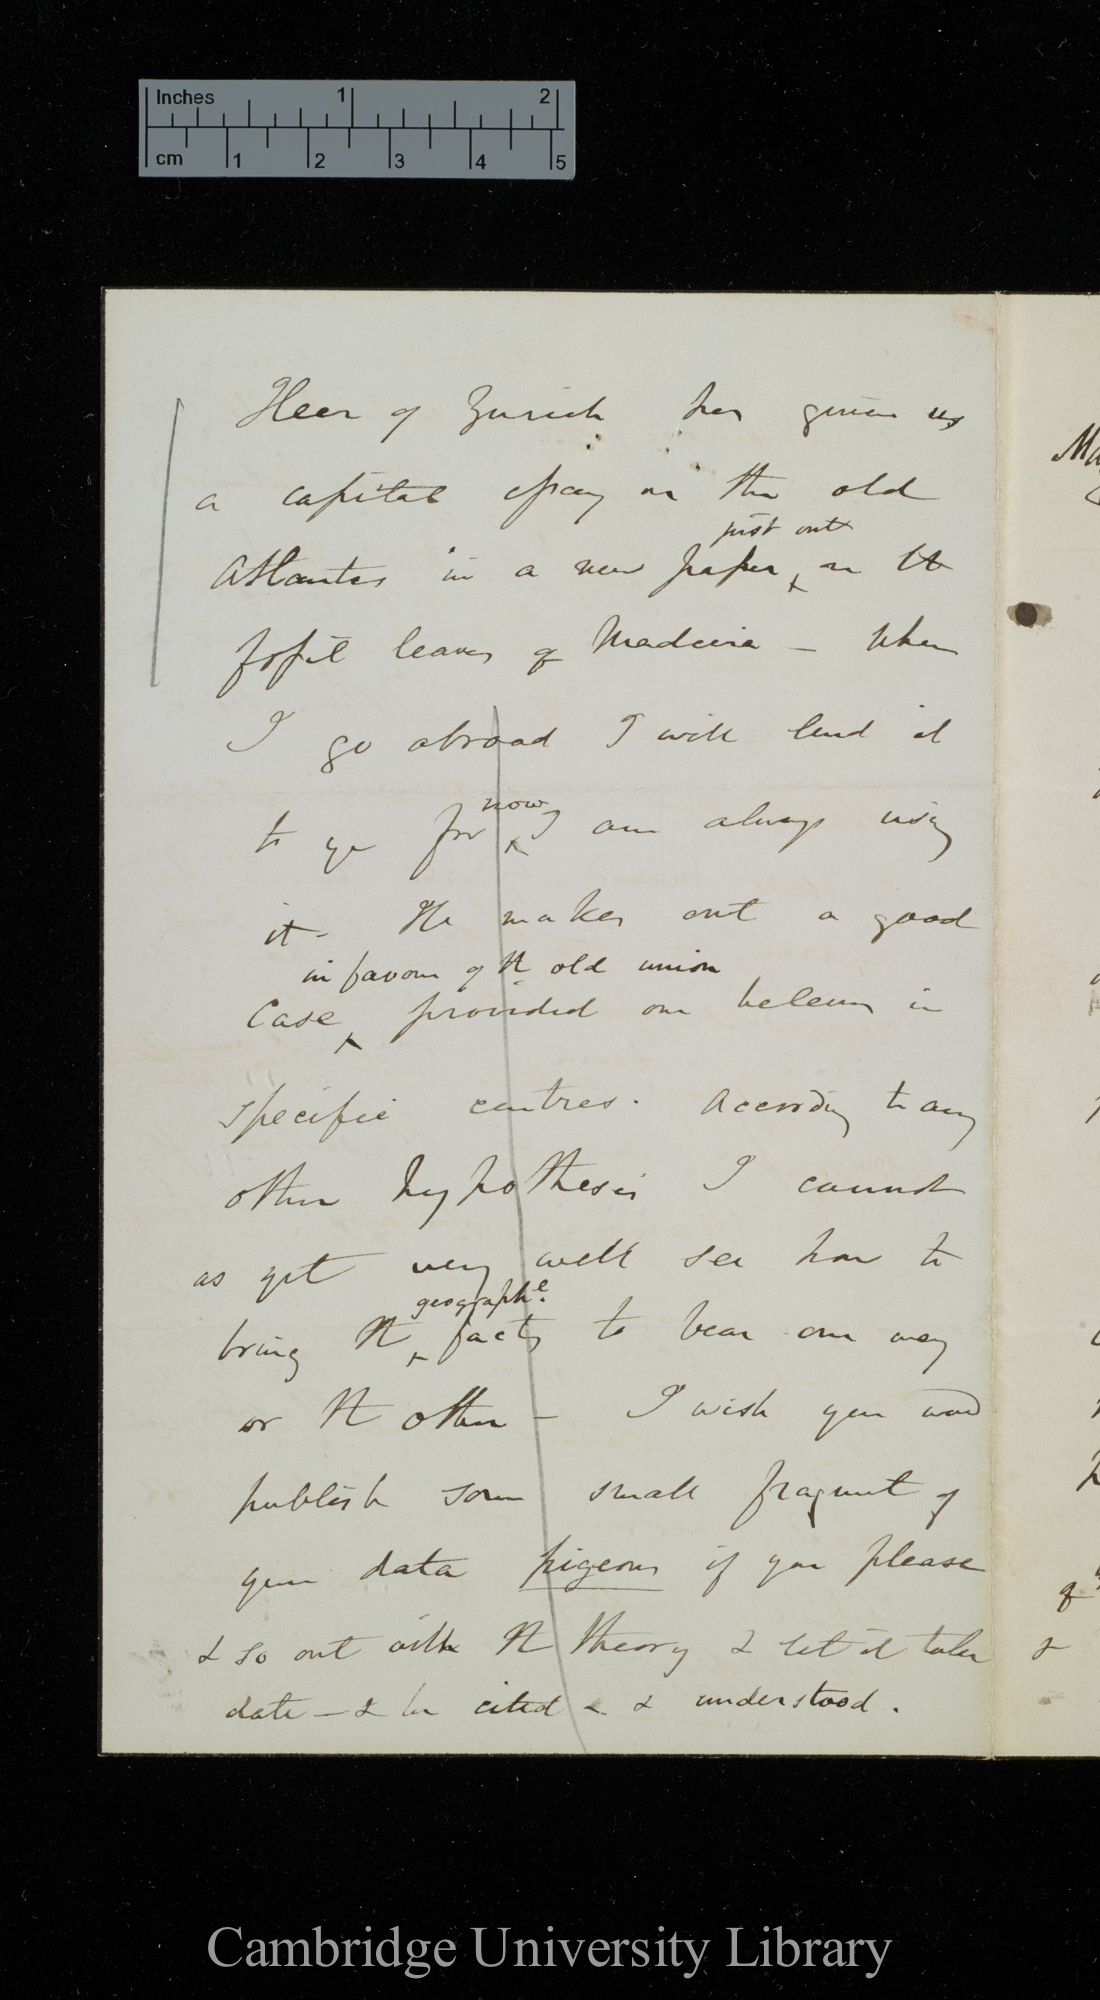 Inches 1 2
cm 1 2 3 4 5
Heer of Zurich has given us
a capital essay on the old
just out
Atlantis in a new paper on the
fossil leaves of Madeira — When
I go abroad I will lend it
now
to you for I am always using
it — He makes out a good
in favour of the old union
case provided one believes in
specific centres. According to any
other hypothesis I cannot
as yet very well see how to
geographl.
bring the facts to bear one way
or the other — I wish you would
publish some small fragment of
your data pigeons if you please
& so out with the theory & let it take
date — & be cited — & understood.
Ma
of
&
Cambridge University Library